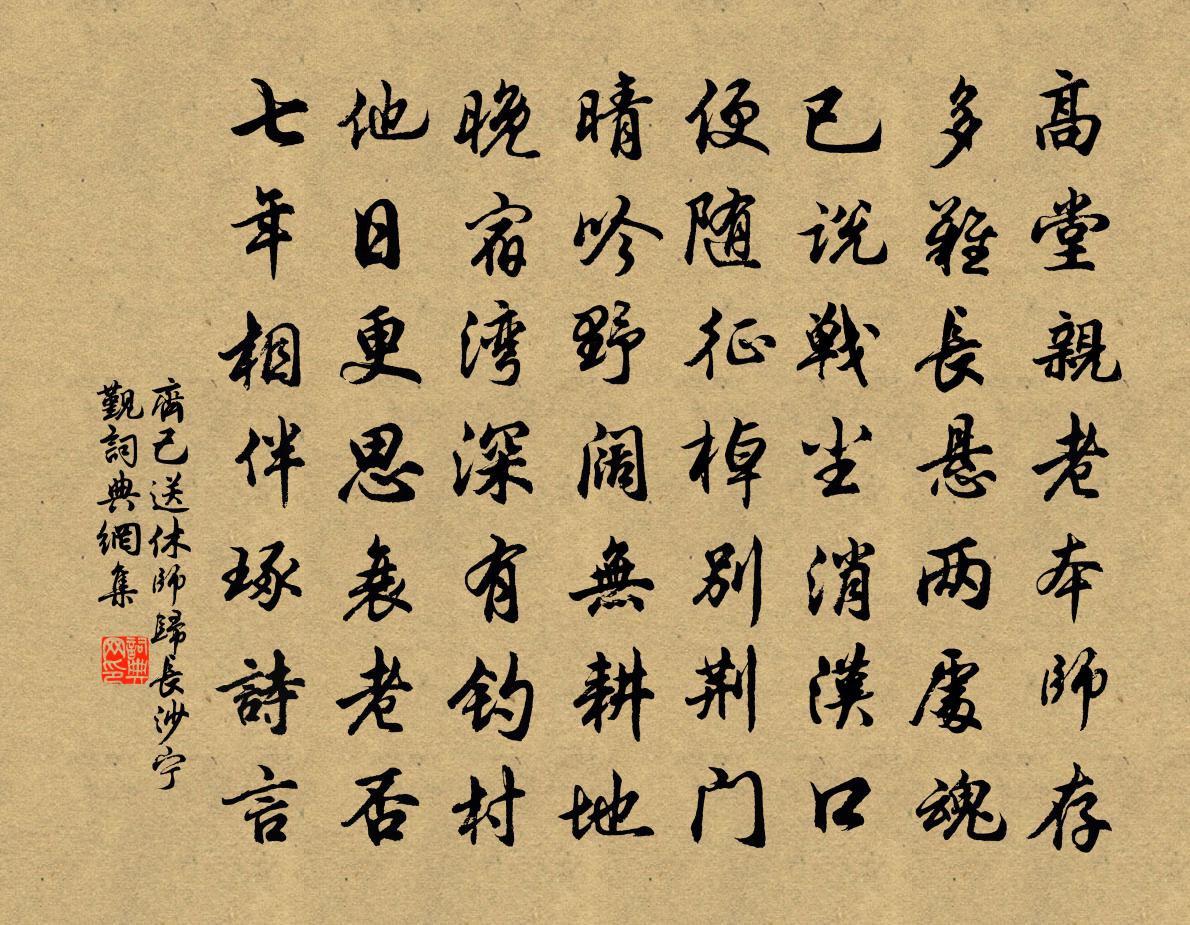 高堂親老本師存
多難長懸兩處魂
已說戰塵消漢口
便隨征棹別荆门
晴吟野阔無耕地
晚宿湾深有釣村
他日更思衰老否
七年相伴琢詩言
齊己送休師歸長沙宁
觀詞典網集
詞典
网印